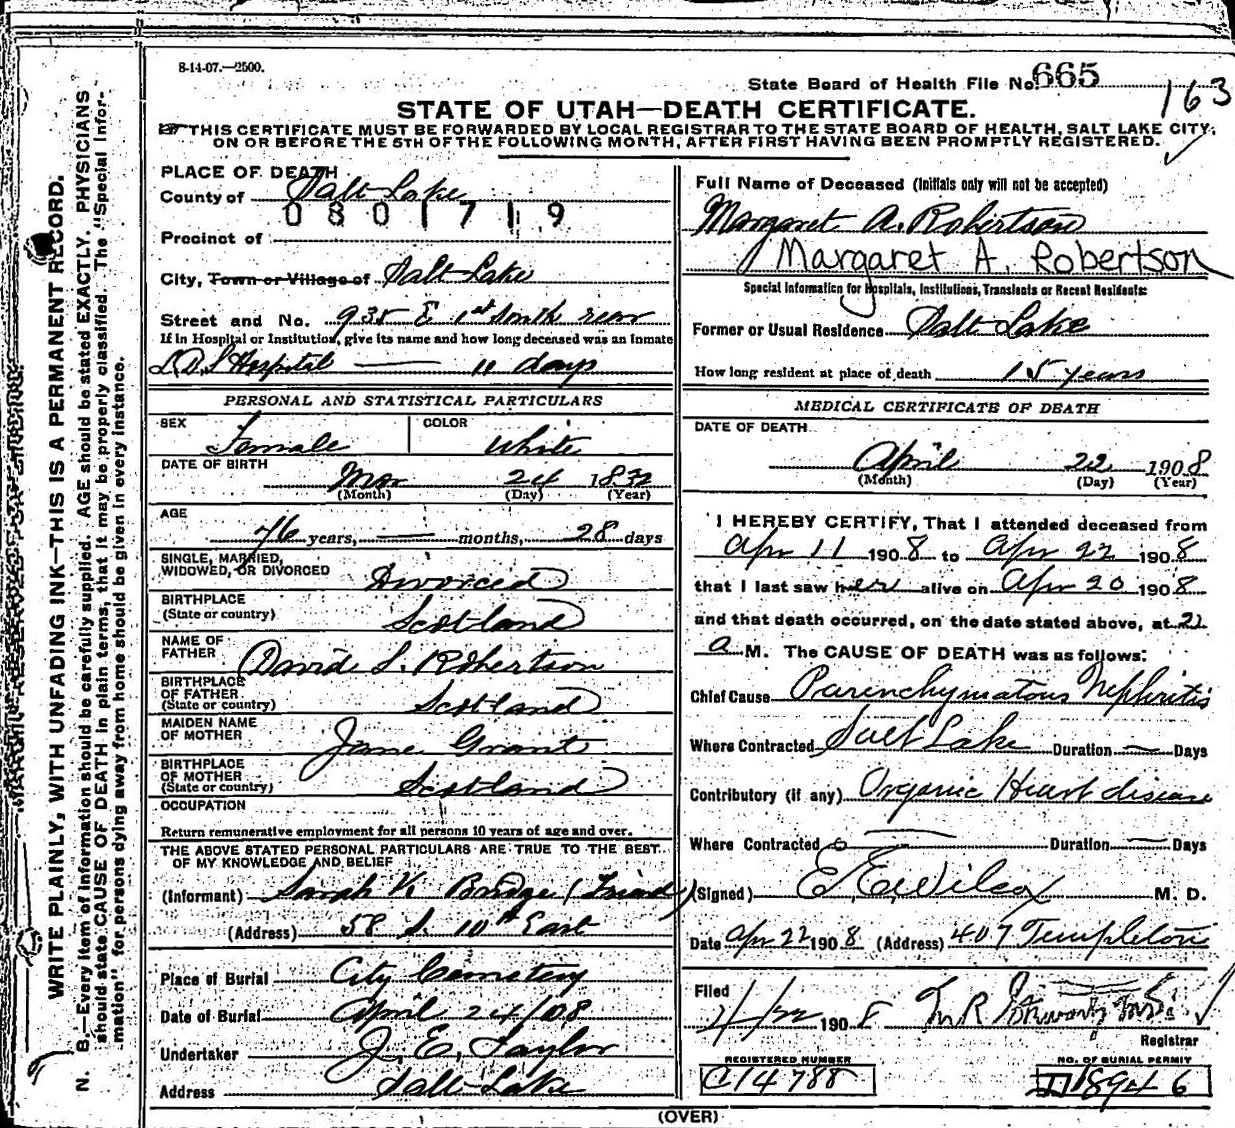 8-14-07.—2500.
State Board of Health File No. 665
163
STATE OF UTAH—DEATH CERTIFICATE.
THIS CERTIFICATE MUST BE FORWARDED BY LOCAL REGISTRAR TO THE STATE BOARD OF HEALTH, SALT LAKE CITY,
ON OR BEFORE THE 5TH OF THE FOLLOWING MONTH, AFTER FIRST HAVING BEEN PROMPTLY REGISTERED.
WRITE PLAINLY, WITH UNFADING INK—THIS IS A PERMANENT RECORD.
N. B.—Every item of information should be carefully supplied. AGE should be stated EXACTLY. PHYSICIANS
should state CAUSE OF DEATH in plain terms, that it may be properly classified. The "Special Infor-
mation" for persons dying away from home should be given in every instance.
PLACE OF DEATH
County of Salt Lake
0801719
Precinct of
City, Town or Village of Salt Lake
Street and No. 935 E 1st South rear
If in Hospital or Institution, give its name and how long deceased was an inmate
L.D.S Hospital — 11 days
PERSONAL AND STATISTICAL PARTICULARS
SEX Female COLOR White
DATE OF BIRTH
Mar 24 1832
(Month) (Day) (Year)
AGE
76 years, — months, 28 days
SINGLE, MARRIED,
WIDOWED, OR DIVORCED Divorced
BIRTHPLACE
(State or country) Scotland
NAME OF
FATHER David L. Robertson
BIRTHPLACE
OF FATHER
(State or country) Scotland
MAIDEN NAME
OF MOTHER Jane Grant
BIRTHPLACE
OF MOTHER
(State or country) Scotland
OCCUPATION
Return remunerative employment for all persons 10 years of age and over.
THE ABOVE STATED PERSONAL PARTICULARS ARE TRUE TO THE BEST
OF MY KNOWLEDGE AND BELIEF
(Informant) Sarah K. Bridge (Friend)
(Address) 58 S. 10th East
Place of Burial City Cemetery
Date of Burial April 24/08
Undertaker J. E. Taylor
Address Salt Lake
Full Name of Deceased (Initials only will not be accepted)
Margaret A. Robertson
Margaret A. Robertson
Special Information for Hospitals, Institutions, Transients or Recent Residents:
Former or Usual Residence Salt Lake
How long resident at place of death 15 years
MEDICAL CERTIFICATE OF DEATH
DATE OF DEATH
April 22 1908
(Month) (Day) (Year)
I HEREBY CERTIFY, That I attended deceased from
Apr 11 1908 to Apr 22 1908
that I last saw her alive on Apr 20 1908
and that death occurred, on the date stated above, at
a M. The CAUSE OF DEATH was as follows:
Chief Cause Parenchymatous Nephritis
Where Contracted Salt Lake Duration — Days
Contributory (if any) Organic Heart disease
Where Contracted Duration — Days
(Signed) E. E. Wilcox M. D.
Date Apr 22 1908 (Address) 407 Templeton
Filed
4/22 1908
Registrar
REGISTERED NUMBER
C14788
NO. OF BURIAL PERMIT
18946
(OVER)